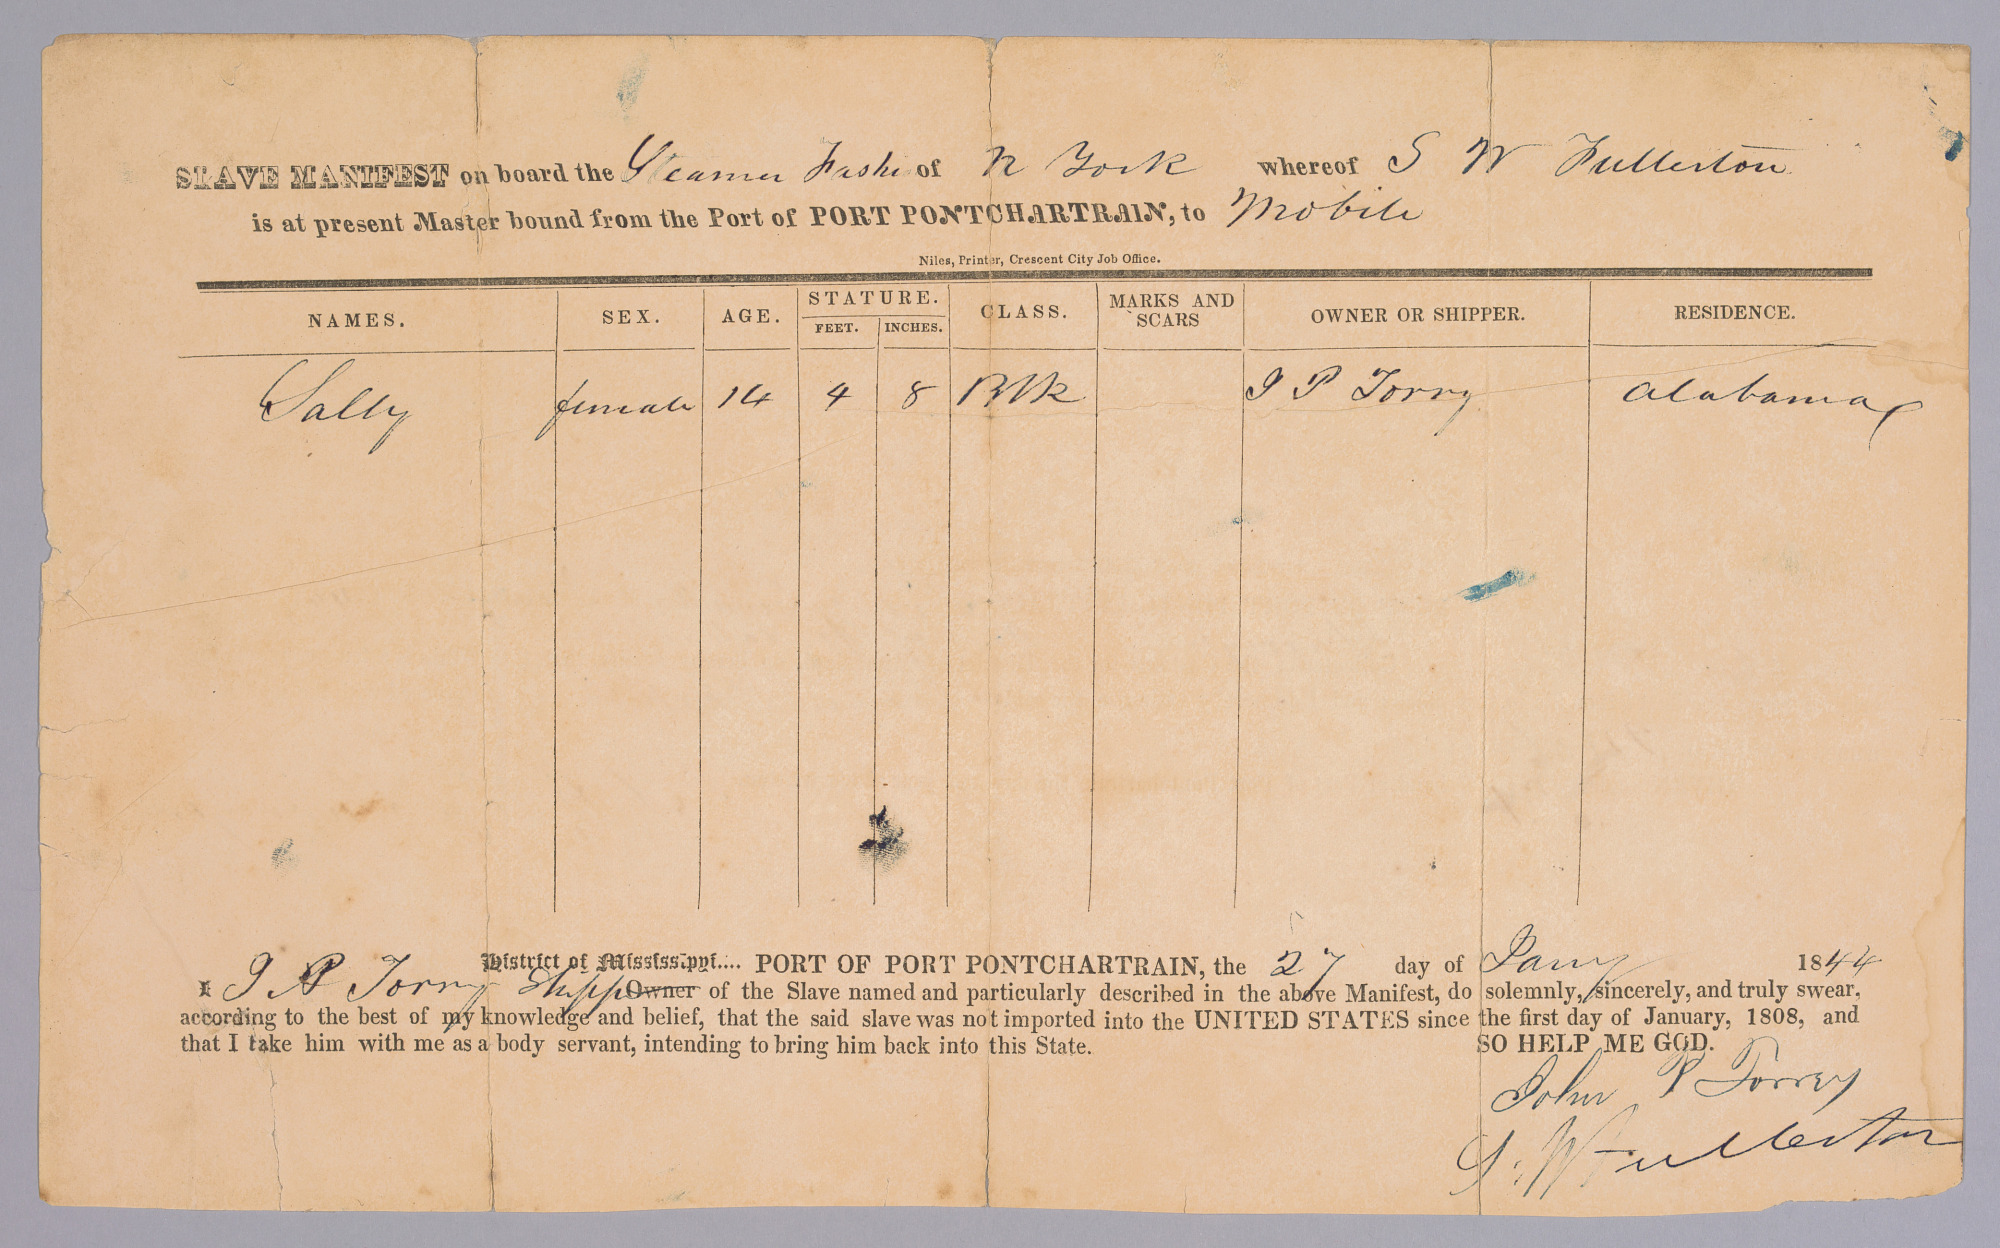 SLAVE MANIFEST on board the Steamer Fashi of N York whereof S W Fullerton
is at present Master bound from the Port of PORT PONTCHARTRAIN, to Mobile
Niles, Printer, Crescent City Job Office.
NAMES. SEX. AGE. STATURE. FEET. INCHES. CLASS. MARKS AND SCARS OWNER OR SHIPPER. RESIDENCE.
Sally female 14 4 8 Blk J P Torry Alabama
District of Mississippi.... PORT OF PORT PONTCHARTRAIN, the 27 day of Jany 1844
I J P Torry Shipp Owner of the Slave named and particularly described in the above Manifest, do solemnly, sincerely, and truly swear,
according to the best of my knowledge and belief, that the said slave was not imported into the UNITED STATES since the first day of January, 1808, and
that I take him with me as a body servant, intending to bring him back into this State. SO HELP ME GOD.
John P Torrey
S. W Fullerton